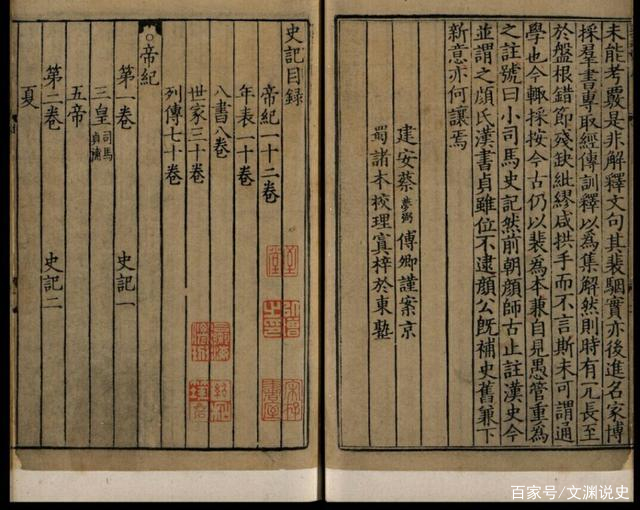 未能考覈是非解釋文句其裴駰實亦後進名家博
採羣書專取經傳訓釋以為集解然則時有冗長至
於盤根錯節殘缺紕繆咸拱手而不言斯未可謂通
學也今輙採按今古仍以裴為本兼自見愚管重為
之註號曰小司馬史記然前朝顔師古止註漢史今
並謂之顔氏漢書貞雖位不逮顔公既補史舊兼下
新意亦何讓焉
建安蔡夢弼傅卿謹案京
蜀諸本校理寘梓於東塾
史記目録
帝紀一十二卷
年表一十卷
八書八卷
世家三十卷
列傳七十卷
帝紀
第一卷 史記一
三皇司馬貞補
五帝
第二卷 史記二
夏
百家号/文渊说史